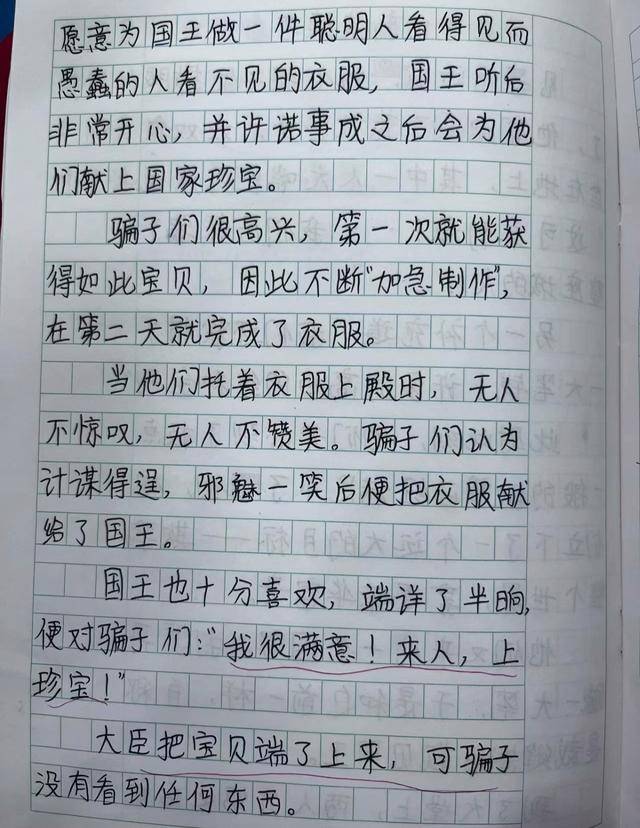 愿意为国王做一件聪明人看得见而
愚蠢的人看不见的衣服，国王听后
非常开心，并许诺事成之后会为他
们献上国家珍宝。
骗子们很高兴，第一次就能获
得如此宝贝，因此不断“加急制作”，
在第二天就完成了衣服。
当他们托着衣服上殿时，无人
不惊叹，无人不赞美。骗子们认为
计谋得逞，邪魅一笑后便把衣服献
给了国王。
国王也十分喜欢，端详了半晌，
便对骗子们：“我很满意！来人，上
珍宝！”
大臣把宝贝端了上来，可骗子
没有看到任何东西。